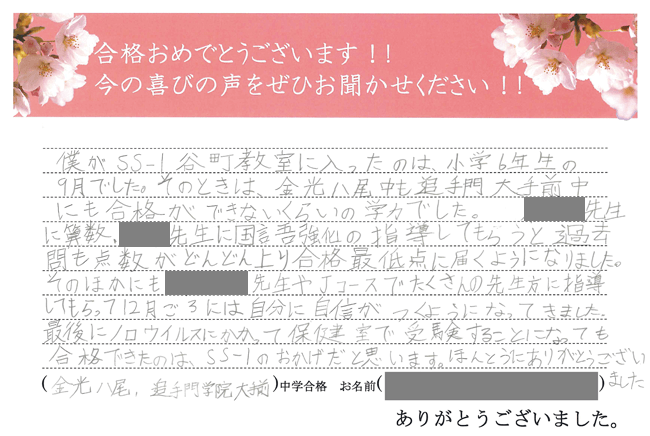 合格おめでとうございます！！
今の喜びの声をぜひお聞かせください！！
僕がSS-1谷町教室に入ったのは、小学6年生の
9月でした。そのときは、金光八尾中も追手門大手前中
にも合格ができないくらいの学力でした。 先生
に算数、 先生に国語強化の指導してもらうと過去
問も点数がどんどん上り合格最低点に届くようになりました。
そのほかにも 先生やJコースでたくさんの先生方に指導
してもらって12月ごろには自分に自信がつくようになってきました。
最後にノロウイルスにかかって保健室で受験することになっても
合格できたのは、SS-1のおかげだと思います。ほんとうにありがとうござい
ました
(金光八尾，追手門学院大手前)中学合格 お名前( )
ありがとうございました。